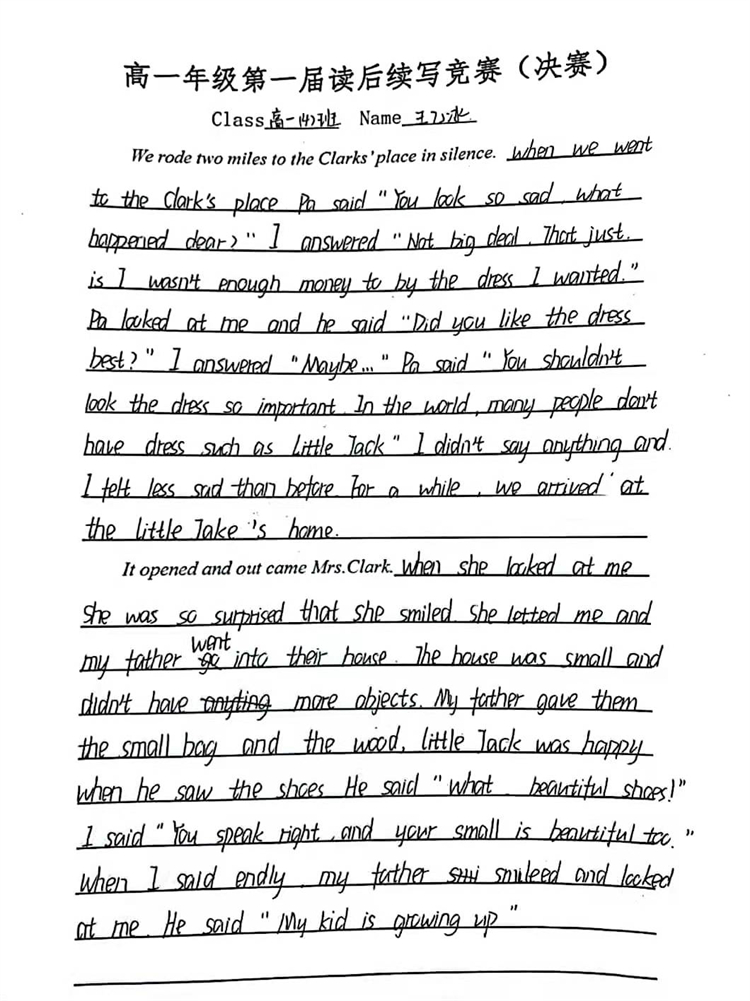 高一年级第一届读后续写竞赛（决赛）
Class 高一(4)班 Name 王乃冰
We rode two miles to the Clarks' place in silence. when we went
to the Clark's place Pa said "You look so sad, what
happened dear?" I answered "Not big deal. That just.
is I wasn't enough money to by the dress I wanted."
Pa looked at me and he said "Did you like the dress
best?" I answered "Maybe..." Pa said "You shouldn't
look the dress so important. In the world, many people don't
have dress such as little Jack" I didn't say anything and.
I felt less sad than before. For a while, we arrived at
the little Jake's home.
It opened and out came Mrs.Clark. when she looked at me
she was so surprised that she smiled. She letted me and
my father went into their house. The house was small and
didn't have more objects. My father gave them
the small bag and the wood, little Jack was happy
when he saw the shoes He said "what beautiful shoes!"
I said "You speak right, and your small is beautiful too."
when I said endly, my father smileed and looked
at me. He said "My kid is growing up"